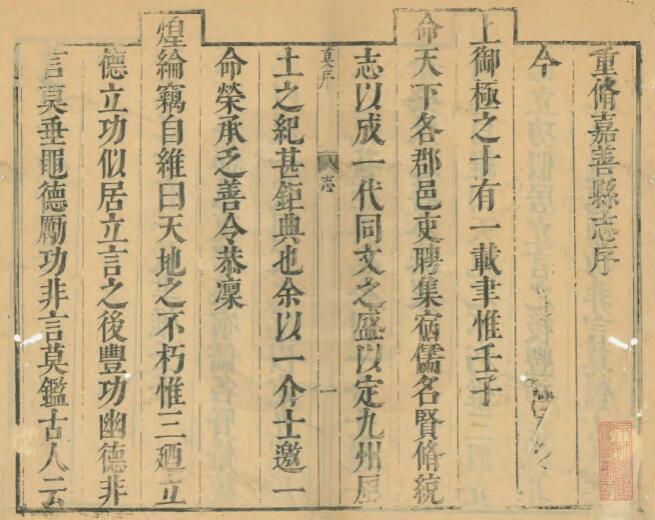 重脩嘉善縣志序
今
上御極之十有一載聿惟壬子
命天下各郡邑吏聘集宿儒名賢脩統
志以成一代同文之盛以定九州風
真序 志 一
土之紀甚鉅典也余以一介士邀一
命榮承乏善令恭凜
煌綸竊自維曰天地之不朽惟三廼立
德立功似居立言之後豐功幽德非
言莫垂黽德勵功非言莫鑑古人云